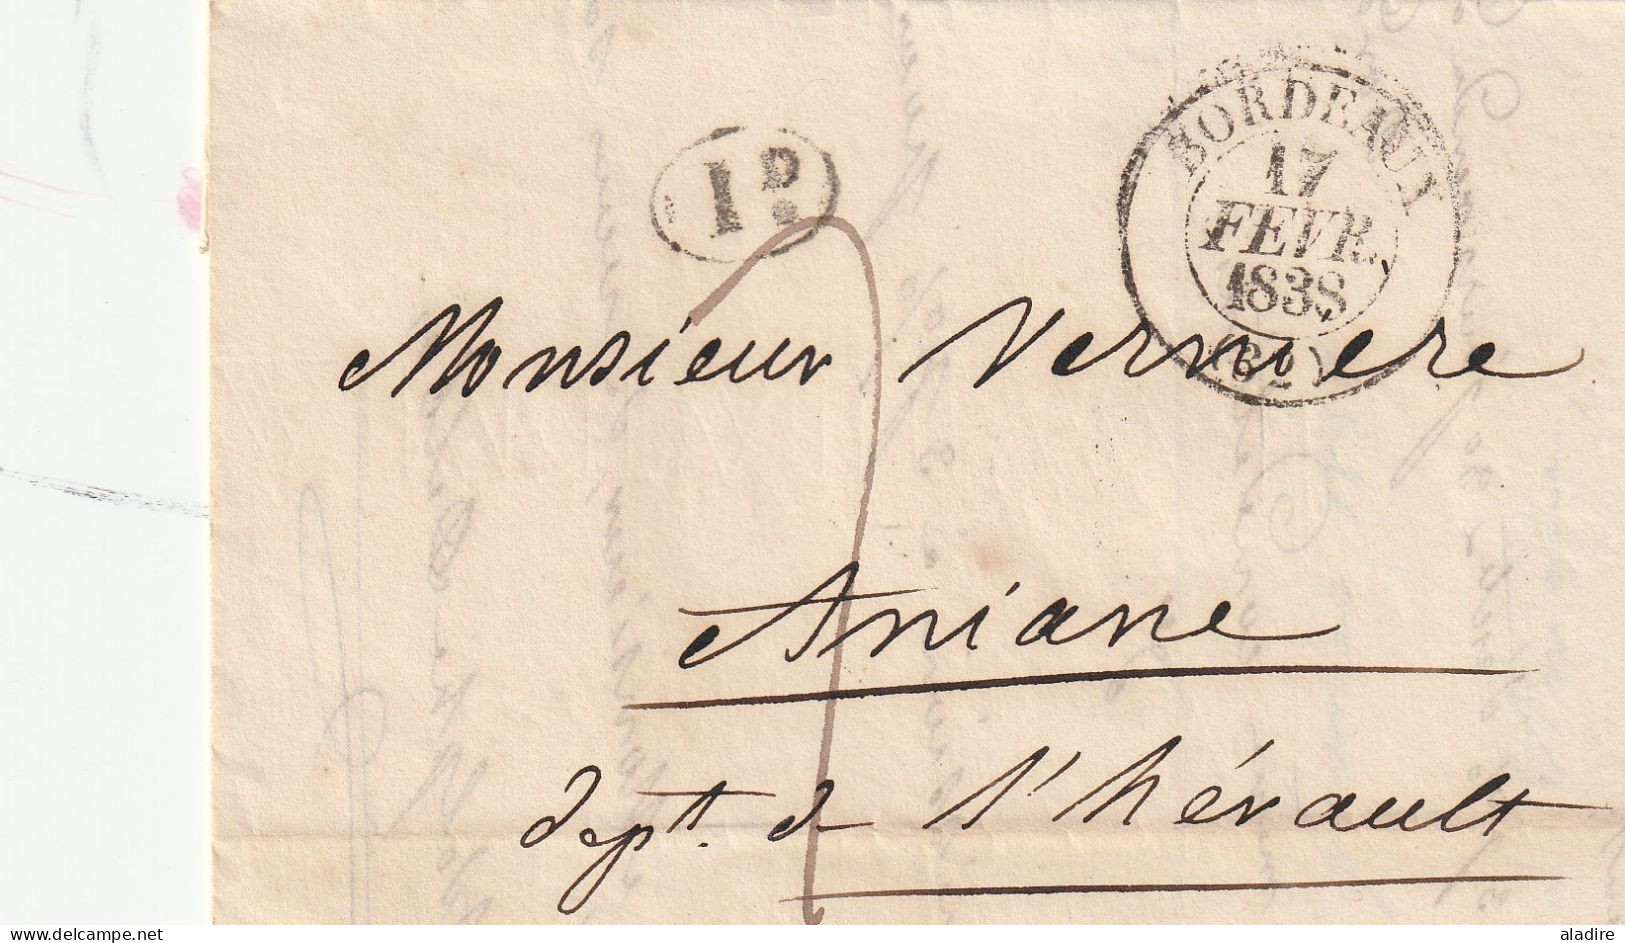 BORDEAUX
17
FEVR.
1838
(32)
1D.
Monsieur Verniere
Aniane
dept. de l'hérault
delcampe.net
aladire